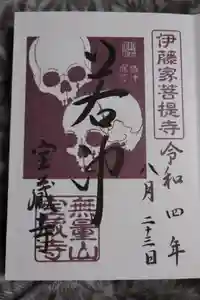 伊藤家菩提寺
令和四年
八月二十三日
若冲
宝蔵寺
無量山